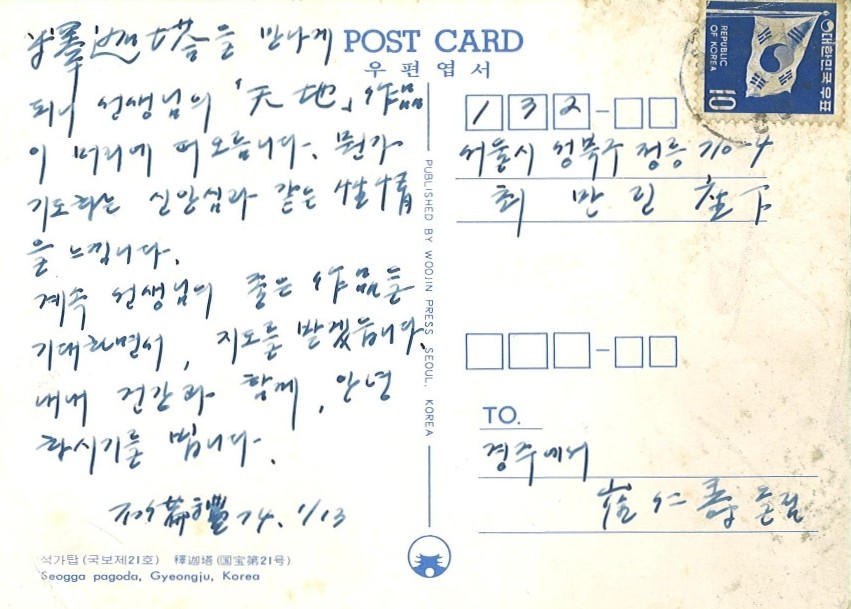 釋迦塔을 만나게
되니 선생님의 「天地」作品
이 머리에 떠오릅니다. 뭔가
기도하는 신앙심과 같은 性情
을 느낍니다.
계속 선생님의 좋은 作品을
기대하면서, 지도를 받겠읍니다.
내내 건강과 함께, 안녕
하시기를 빕니다.
74. 1/13
석가탑 (국보제21호) 釋迦塔 (国宝第21号)
Seogga pagoda, Gyeongju, Korea
POST CARD
우편엽서
PUBLISHED BY WOOJIN PRESS SEOUL, KOREA
대한민국우표
REPUBLIC OF KOREA
10
132-
서울시 성북구 정릉 710-4
최 만 린 座下
TO.
경주에서
崔仁壽 드림